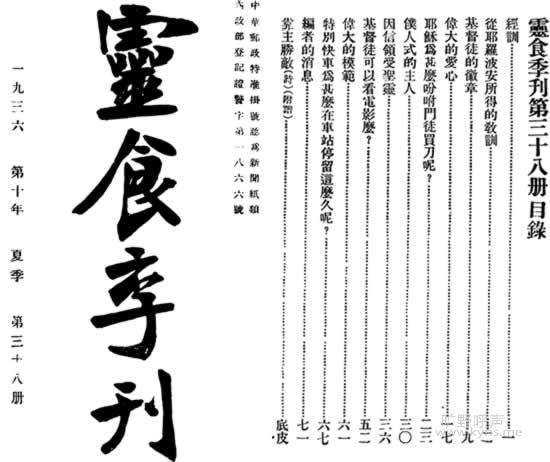 靈食季刊第三十八册目錄
經訓……一
從耶羅波安所得的教訓……二
基督徒的徽章……九
偉大的愛心……一七
耶穌爲甚麼吩咐門徒買刀呢?……二三
僕人式的主人……三〇
因信領受聖靈……三六
基督徒可以看電影麼?……五二
偉大的模範……六一
特別快車爲甚麼在車站停留這麼久呢?……六七
編者的消息……七一
靠主勝敵(詩)(附譜)……底皮
中華郵政特准掛號認爲新聞紙類
內政部登記證警字第一八六六號
靈食季刊
一九三六 第十年 夏季 第三十八册
旷野呼声
www.kyhs.me